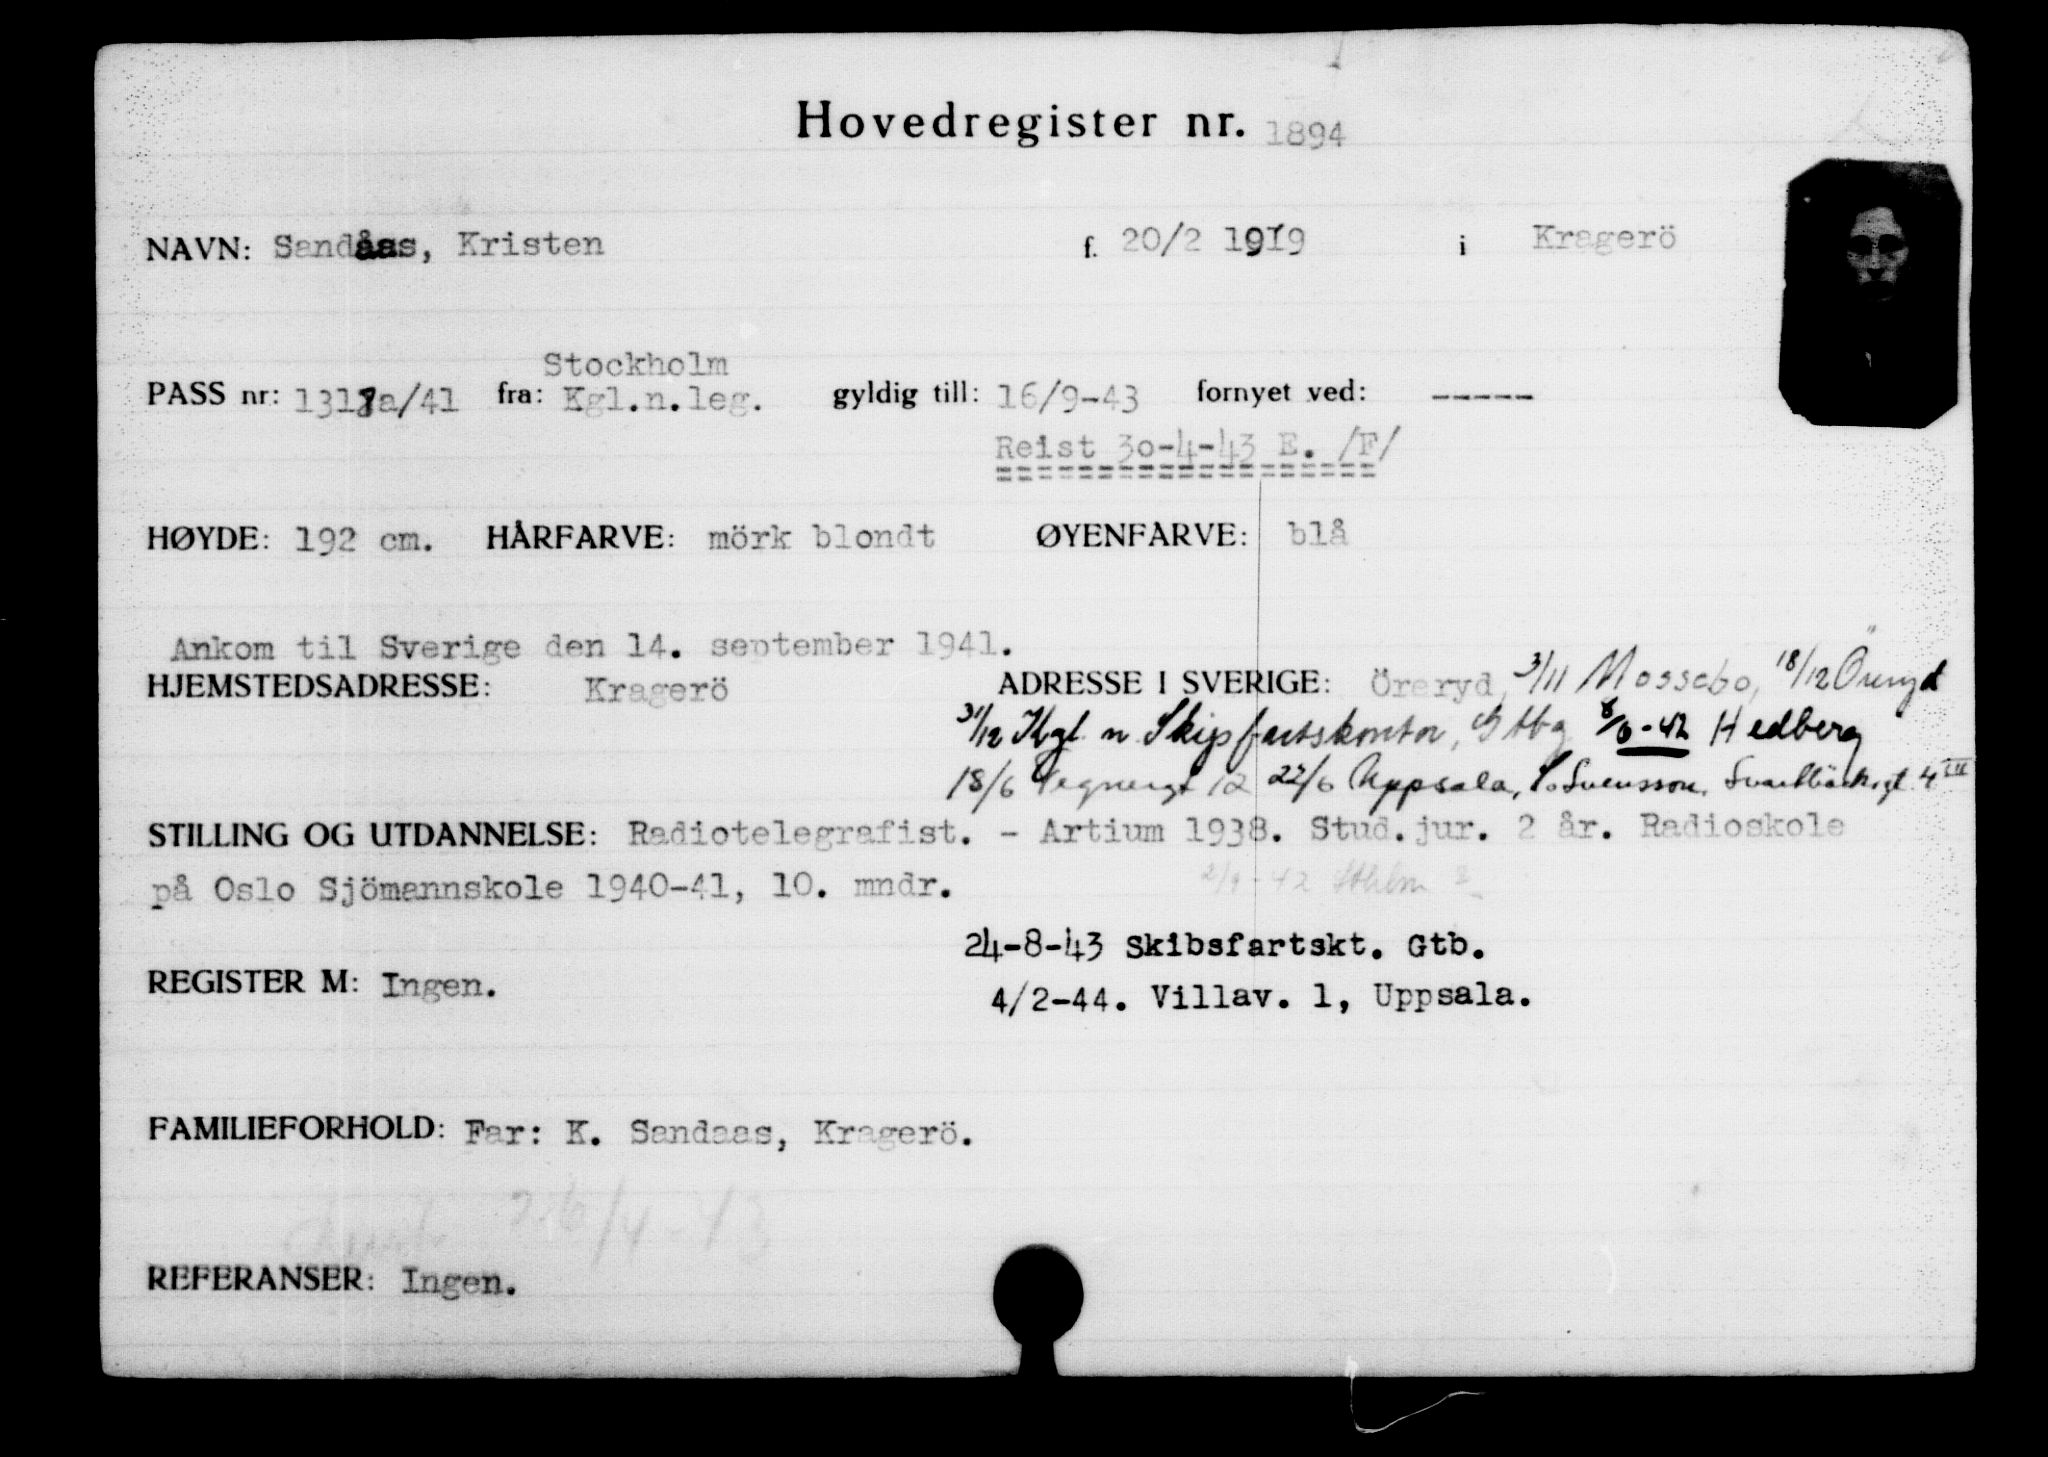 Hovedregister nr. 1894
NAVN: Sandåas, Kristen f. 20/2 1919 i Kragerö
Stockholm
PASS nr: 1318a/41 fra: Kgl.n.leg. gyldig till: 16/9-43 fornyet ved: -----
Reist 30-4-43 E. /F/
===================
HØYDE: 192 cm. HÅRFARVE: mörk blondt ØYENFARVE: blå
Ankom til Sverige den 14. september 1941.
HJEMSTEDSADRESSE: Kragerö ADRESSE I SVERIGE: Öreryd, 3/11 Mossebo, 18/12 Öreryd
31/12 Kgl n Skipsfartskontor, Gtbg 8/6-42 Hedberg
18/6 Tegnergt 12 22/6 Uppsala, Svensson, Svartbäcksgt 4 III
STILLING OG UTDANNELSE: Radiotelegrafist. - Artium 1938. Stud.jur. 2 år. Radioskole
på Oslo Sjömannskole 1940-41, 10. mndr. 2/9-42 Sthlm
24-8-43 Skibsfartskt. Gtb.
REGISTER M: Ingen.
4/2-44. Villav. 1, Uppsala.
FAMILIEFORHOLD: Far: K. Sandaas, Kragerö.
26/4-43
REFERANSER: Ingen.